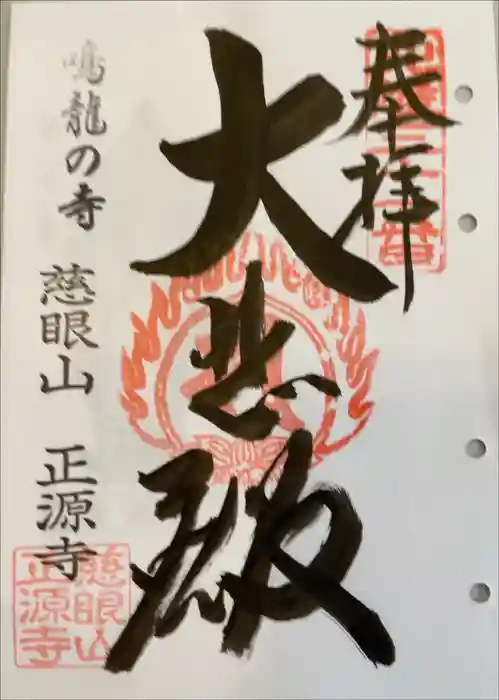 奉拝
大悲殿
鳴龍の寺 慈眼山 正源寺
慈眼山
正源寺